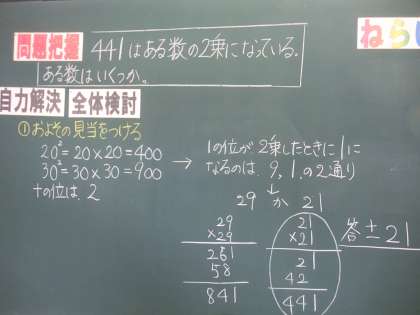 問題把握
441はある数の2乗になっている。
ある数はいくつか。
ねら
自力解決 全体検討
①およその見当をつける
20²=20×20=400
30²=30×30=900
十の位は、2
→ 1の位が2乗したときに1に
なるのは、9、1、の2通り
29 か 21
29
×29
261
58
841
21
×21
21
42
441
答±21